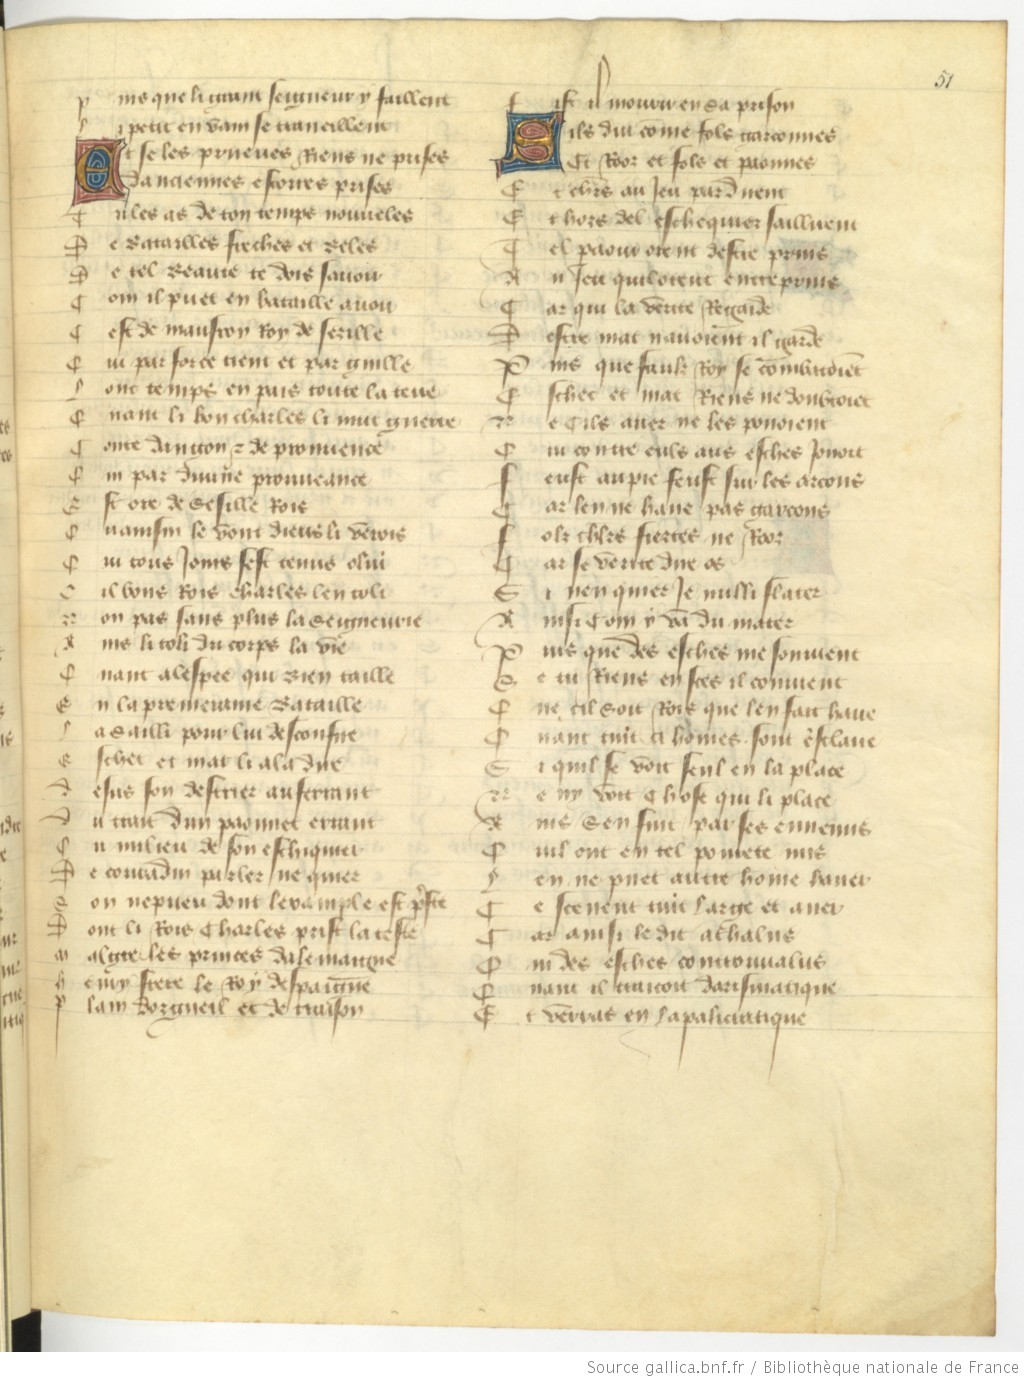 51
p uis que li grant seigneur y faillent
l i petit en vain se traueillent
E t se les prueues Riens ne prises
Danciennes estoires prises
T u les as de ton temps nouueles
D e Batailles fresches et Beles
D e tel Beaute te dois sauoir
C om il puet en bataille auoir
C est de maufroy Roy de sezille
Q ui par force tient et par guille
l ont temps en pais toute la terre
Q uant li bon charles li mut guerre
C onte daniou z de prouuence
Q ui par diuine pourueance
E st ore de Sesille Rois
Q uainsin le voult dieus li verois
Q ui tous Jours sest tenus o lui
C il bons Rois Charles len toli
N on pas sans plus la Seigneurie
A ins li toli du corps la vie
Q uant a lespee qui Bien taille
E n la premeraine Bataille
l assailli pour lui desconfire
E schec et mat li ala dire
D esus son destrier auferrant
D u trait dun paonnet errant
O u milieu de son eschiquier
D e corradin parler ne quier
S on nepueu dont lexample est preste
D ont li Rois Charles prist la teste
M algre les princes dalemaigne
h enry frere le Roy despaigne
P lain dorgueil et de traison
f ist il mourir en sa prison
S ils dui come fols garconnes
Et Roor et fols et paonnes
E t chrs au Jeu perdirent
E t hors del eschequier saillirent
T el paour orent destre prins
A u Jeu quil orent entreprins
C ar qui la verite Regarde
D estre mat nauoient il garde
P uis que sans Roy se combatoient
E schec et mat Riens ne doubtoient
N e Cils auer ne les pouoient
Q ui contre euls aus esches Jouoit
f eust a pie feust sur les arcons
C ar len ne haue pas garcons
f olz chlrs fierces ne Roor
C ar se verite dire os
S i nen quier Je nulli flater
A insi Com y va du mater
P uis que des esches me souuient
S e tu Riens en sces il conuient
Q ue cil soit Rois que len fait haue
Q uant tuit si homes sont esclaue
S i quil se voit seul en la place
N e ny voit Chose qui li place
A ins sen fuit par ses ennemis
Q uil ont en tel pourete mis
l en ne puet autre home hauer
C e sceuent tuit large et auer
C ar ainsi le dit athalus
Q ui des esches controuua lus
Q uant il traitoit darismatique
E t verras en la paliciatique
Source gallica.bnf.fr / Bibliothèque nationale de France